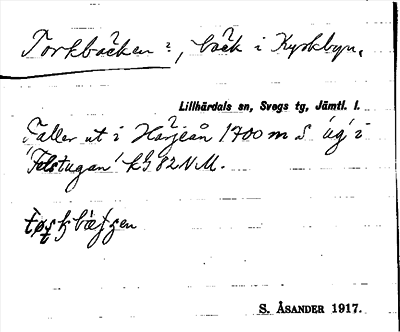 Torkbäcken ?, bäck i Kyrkbyn.
Lillhärdals sn, Svegs tg, Jämtl. l.
Faller ut i Härjeån 1700 m S 'ug' i
'Felstugan' kG 82 NM.
S. ÅSANDER 1917.